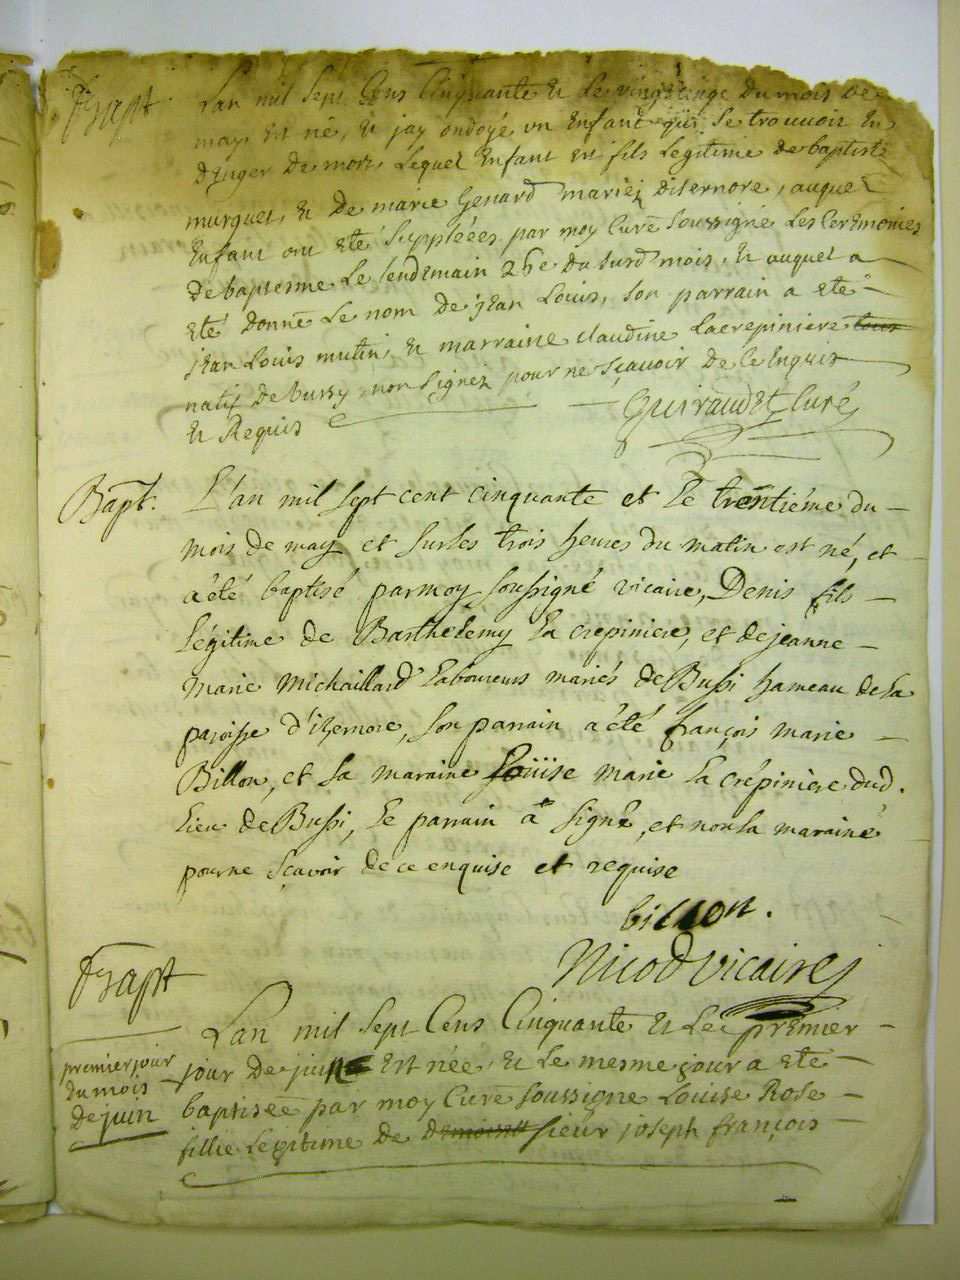 Bapt
Lan mil Sept Cens Cinquante et le vingt cinqe du mois de
may est né, et jay ondoyé un Enfant qui se trouvoit En
denger de mort, Lequel Enfant est fils Legitime de baptiste
murquet, et de marie Genard mariez disernore, auquel
Enfant ont Eté Suppléées par moy Curé Soussigné Les Ceremonies
de baptesme Le lendemain 26e du Surd mois, et auquel a
Eté donné Le nom de jean Louis, Son parrain a eté
jean Louis mutin, et marraine Claudine Lacrepiniere
natif de bussy, non Signez pour ne Sçavoir de Ce Enquis
et Requis
Guiraudet Curé
Bapt.
L'an mil sept cent cinquante et le trentiéme du
mois de may et sur les trois heures du matin est né, et
a été baptisé par moy soussigné vicaire, Denis fils
légitime de Barthelemy La crepiniere, et de jeanne
marie Michaillard laboureurs mariés de Bussi hameau de la
paroisse d'izernore, son parrain a été françois marie
Billon, et sa maraine Loüise marie La crépiniere dud.
lieu de Bussi, le parrain a signé, et non la maraine
pour ne sçavoir de ce enquise et requise
billon.
Nicod vicaire
Bapt
premier jour
du mois
de juin
Lan mil Sept Cens Cinquante et Le premier
jour de juin Est née, et Le mesme jour a eté
baptisée par moy Curé soussigné Louise Rose
fillie Legitime de demoise sieur joseph françois